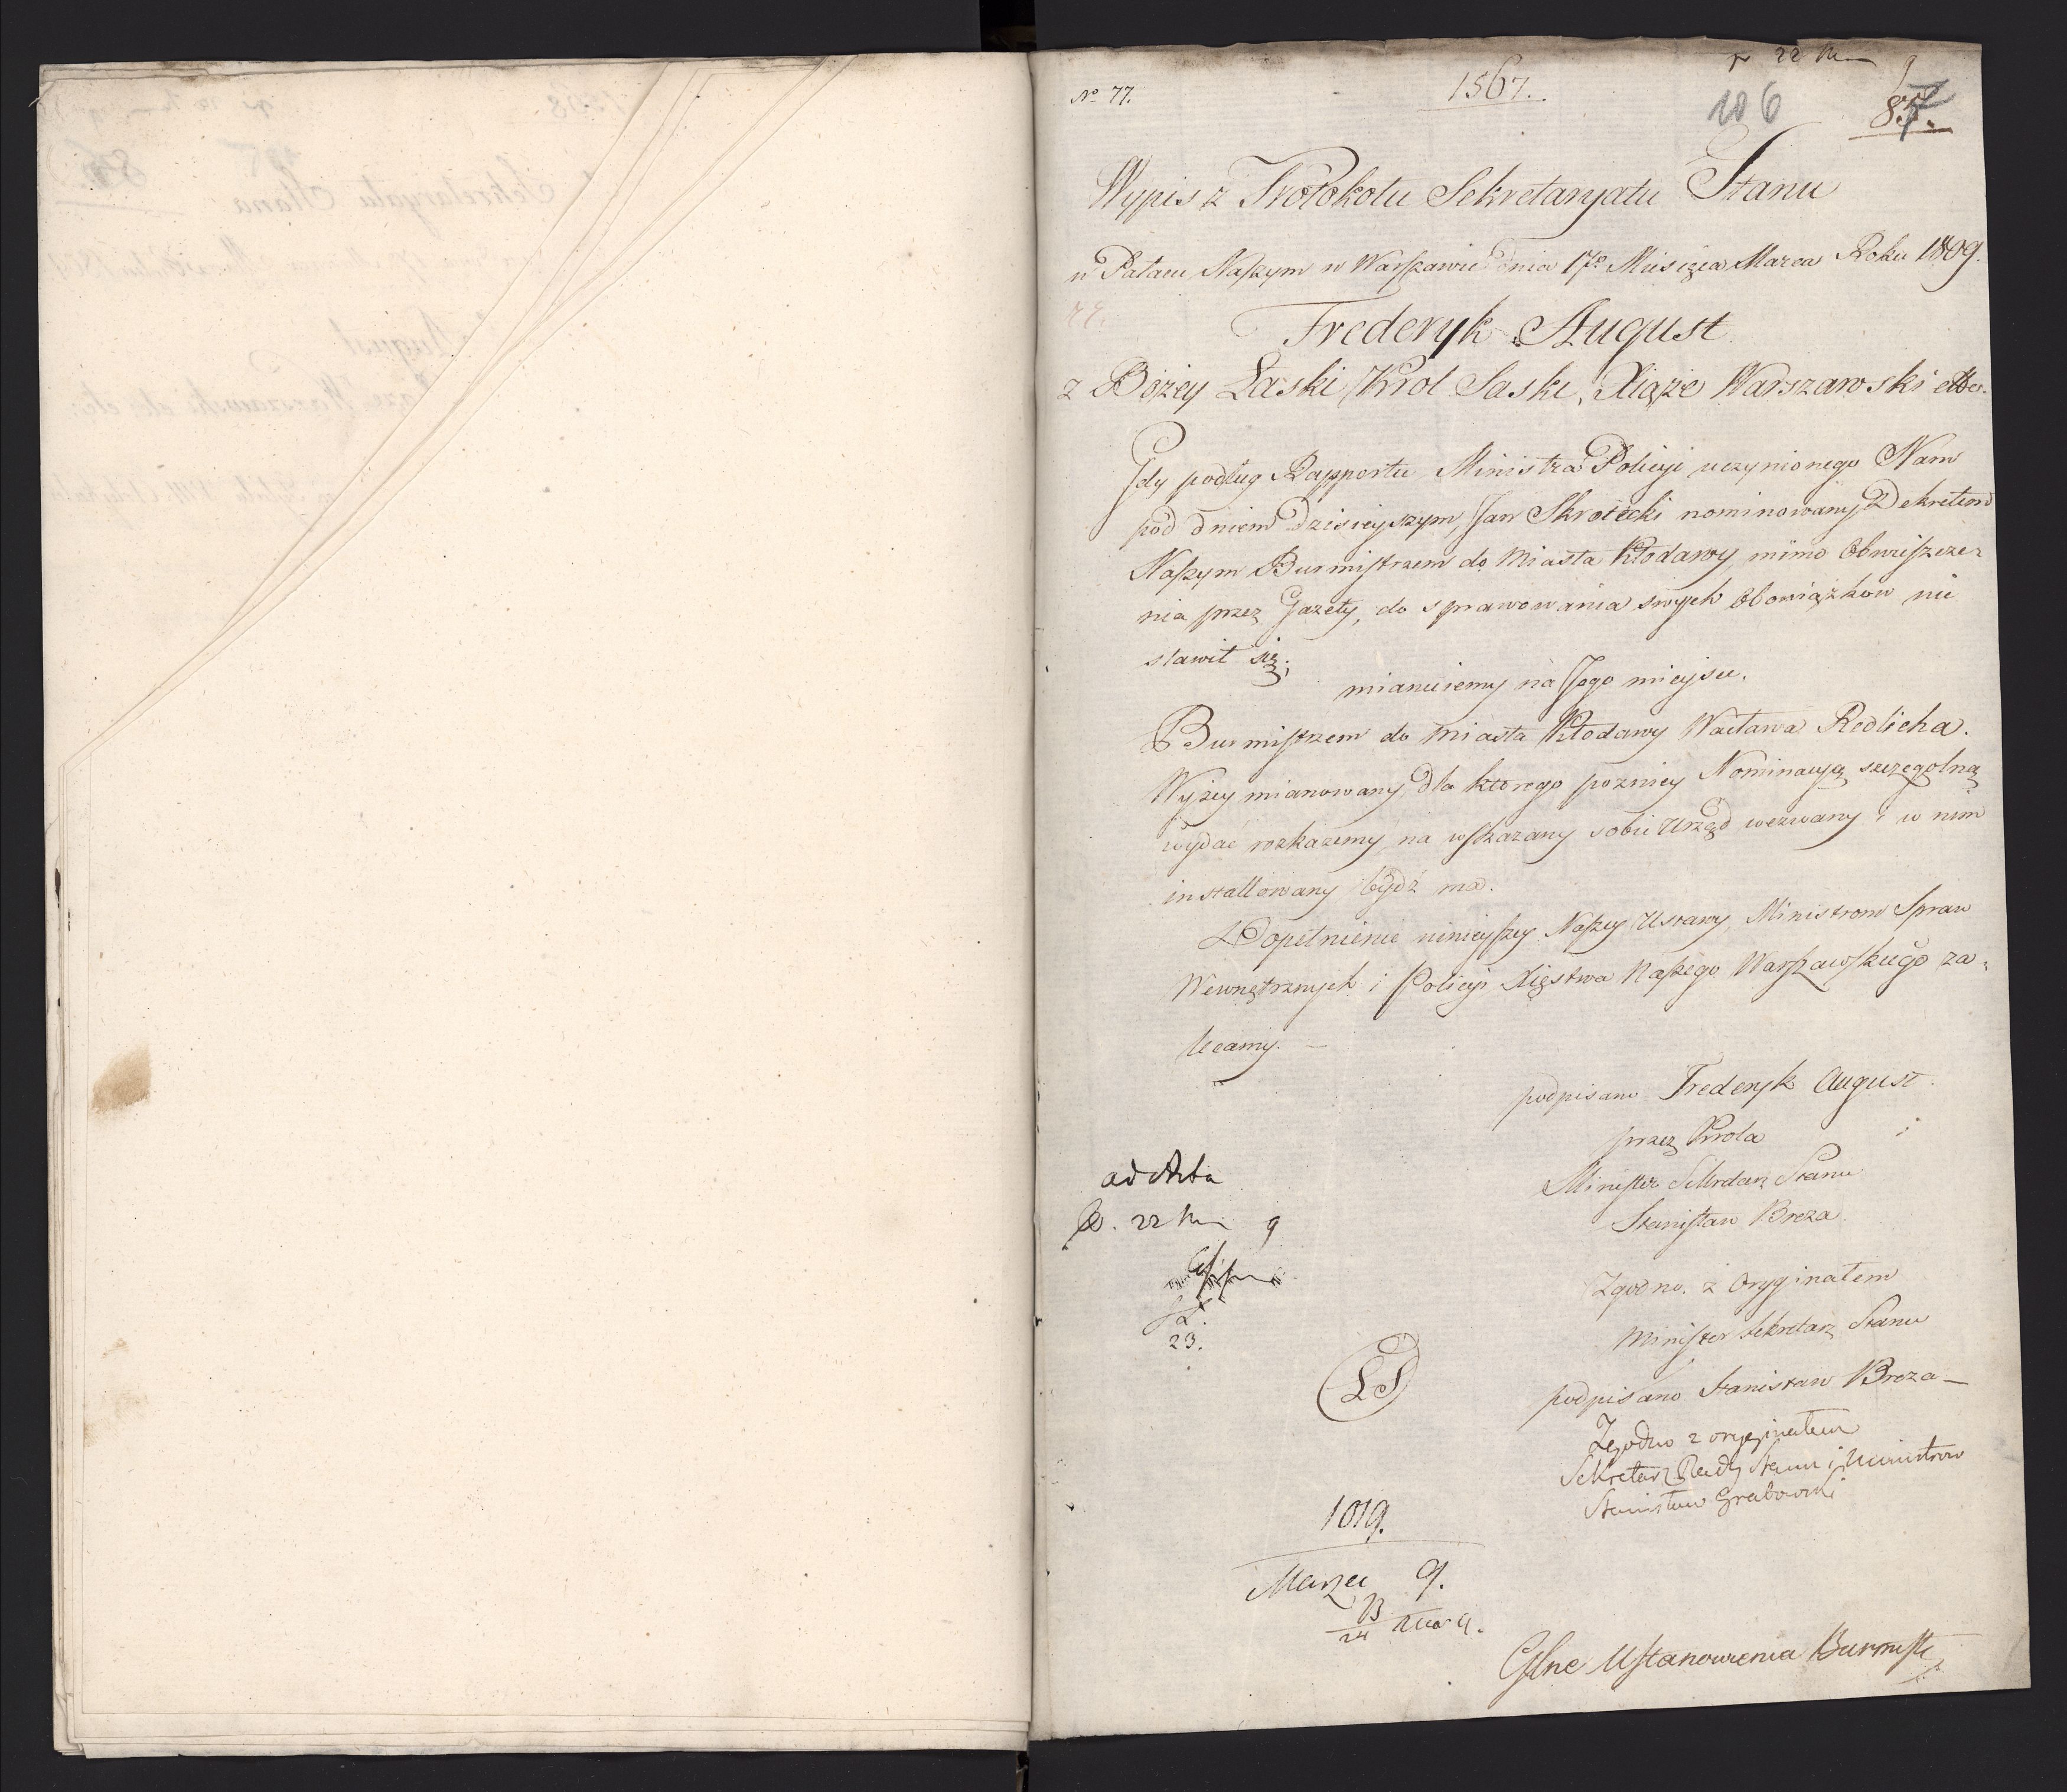 No 77.
1567.
106
87.
Wypis z Protokołu Sekretaryatu Stanu
w Pałacu Naszym w Warszawie dnia 17o Miesięca Marca Roku 1809.
Frederyk August
z Bożey Łaski Krol Saski, Xiąże Warszawski etc.
Gdy podług Rapportu Ministra Policyi uczynionego Nam
pod dniem dzisieyszym, Jan Skrotecki nominowany Dekretem
Naszym Burmistrzem do Miasta Kłodawy mimo Obwiszcze-
nia przez Gazety, do sprawowania swych Obowiązkow nie
stawił się;
mianuiemy na Jego mieysce.
Burmistrzem do Miasta Kłodawy Wacława Redlicha.
Wyżey mianowany, dla ktorego pozniey Nominacyą szczegolną
wydać rozkażemy, na wskazany sobie Urząd wezwany i w nim
installowany bydź ma.
Dopełnienie ninieyszey Naszey Ustawy, Ministrom Spraw
Wewnętrznych i Policyi Xięstwa Naszego Warszawskiego za-
lecamy.
podpisano Frederyk August.
przez Krola
Minister Sekretarz Stanu
Stanisław Breza
ad Acta
22 9
23.
Zgodno z Oryginałem
Minister Sekretarz Stanu
LS
podpisano Stanisław Breza
Zgodno z oryginałem
Sekretarz Rady Stanu i Ministrow
Stanisław Grabowski
1019.
Marzec 9.
24
Gślne Ustanowienia Burmist